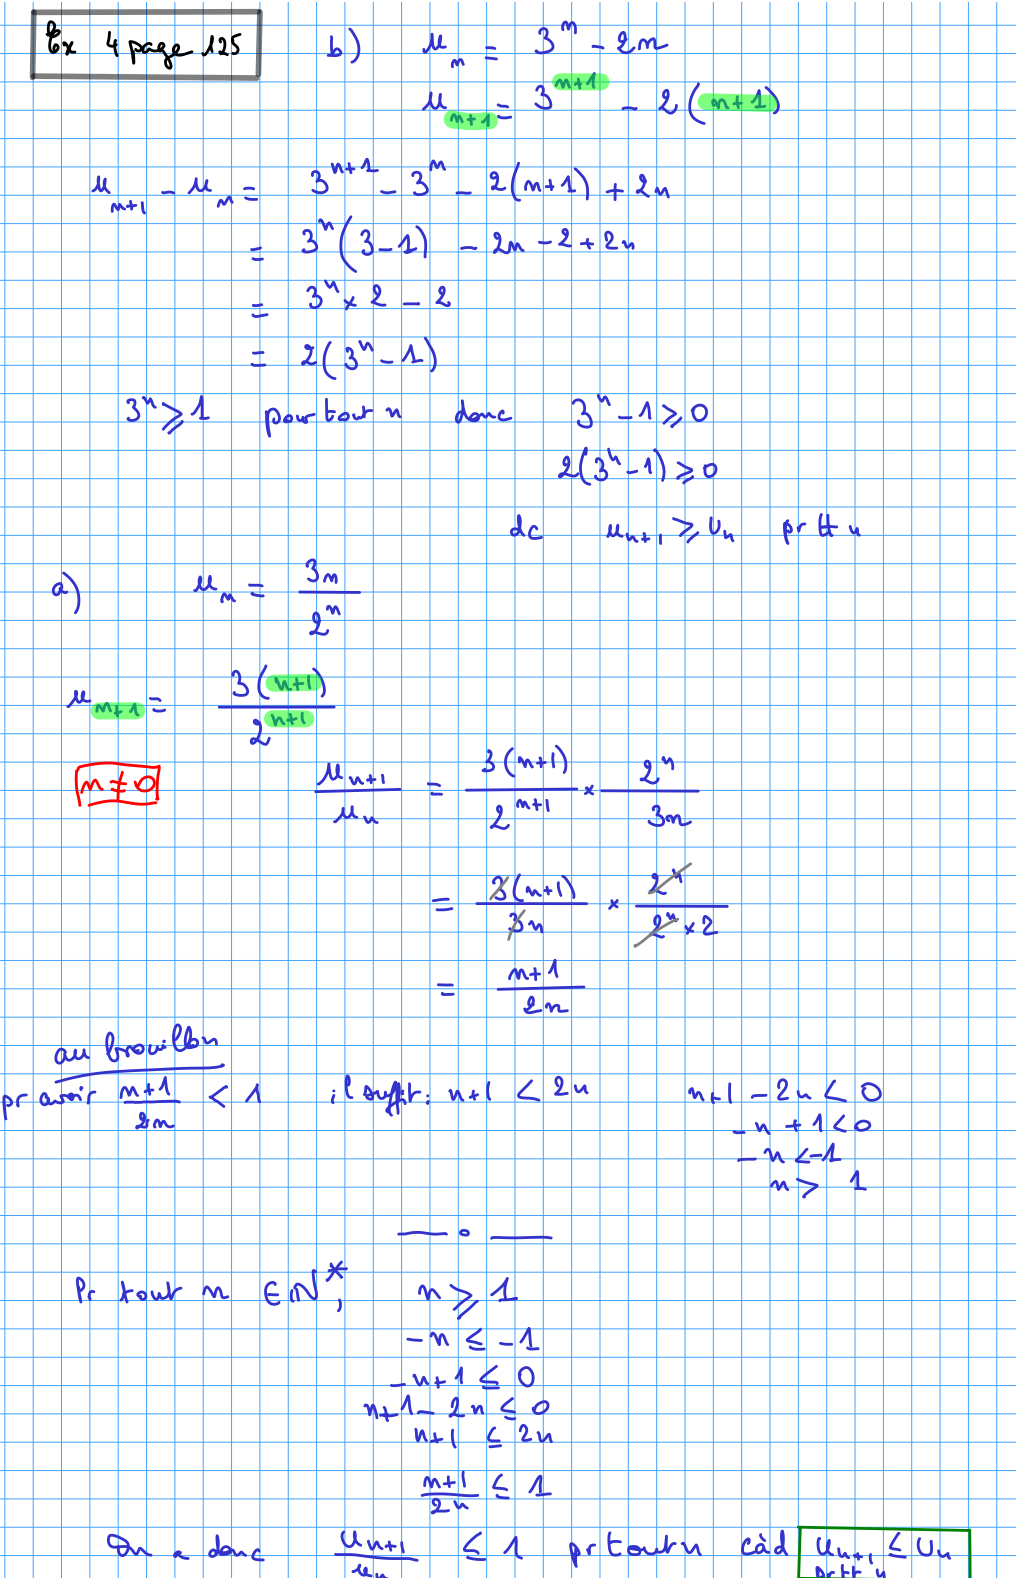 Ex 4 page 125
b) uₙ = 3ⁿ - 2n
uₙ₊₁ = 3ⁿ⁺¹ - 2(n+1)
uₙ₊₁ - uₙ = 3ⁿ⁺¹ - 3ⁿ - 2(n+1) + 2n
= 3ⁿ(3-1) - 2n - 2 + 2n
= 3ⁿ × 2 - 2
= 2(3ⁿ - 1)
3ⁿ ⩾ 1 pour tout n donc 3ⁿ - 1 ⩾ 0
2(3ⁿ - 1) ⩾ 0
dc uₙ₊₁ ⩾ Uₙ pr tt n
a) uₙ = 3n / 2ⁿ
uₙ₊₁ = 3(n+1) / 2ⁿ⁺¹
n ≠ 0 uₙ₊₁ / uₙ = 3(n+1) / 2ⁿ⁺¹ × 2ⁿ / 3n
= 3(n+1) / 3n × 2ⁿ / 2ⁿ × 2
= n+1 / 2n
au brouillon
pr avoir n+1 / 2n < 1 il suffit : n+1 < 2n n+1 - 2n < 0
-n + 1 < 0
-n < -1
n > 1
Pr tout n ∈ ℕ*, n ⩾ 1
-n ≤ -1
-n+1 ≤ 0
n+1 - 2n ≤ 0
n+1 ≤ 2n
n+1 / 2n ≤ 1
On a donc uₙ₊₁ / uₙ ≤ 1 pr tout n càd uₙ₊₁ ≤ Uₙ
pr tt n